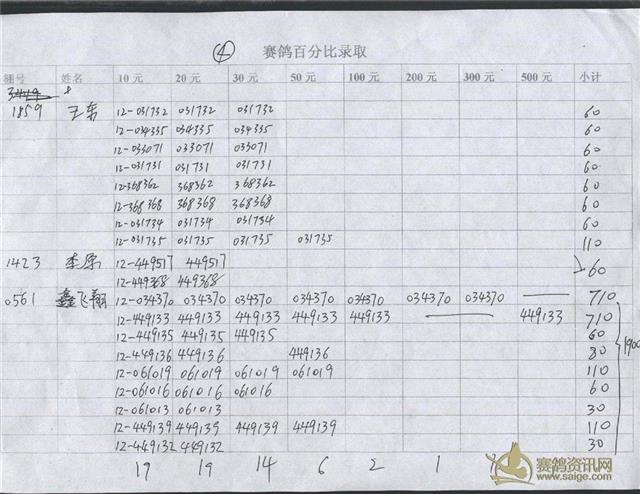 ④ 赛鸽百分比录取
棚号 姓名 10 元 20 元 30 元 50 元 100 元 200 元 300 元 500 元 小计
1859 王东 12-031732 031732 031732 60
12-034335 034335 034335 60
12-033071 033071 033071 60
12-031731 031731 031731 60
12-368362 368362 368362 60
12-368368 368368 368368 60
12-031734 031734 031734 60
12-031735 031735 031735 031735 110
1423 李原 12-449517 449517
12-449368 449368 60
0561 鑫飞翔 12-034370 034370 034370 034370 034370 034370 034370 — 710
12-449133 449133 449133 449133 449133 — 449133 710
12-449135 449135 449135 60
12-449136 449136 449136 80
12-061019 061019 061019 061019 110
12-061016 061016 061016 60
12-061013 061013 30
12-449139 449139 449139 449139 110
12-449132 449132 30
1900
19 19 14 6 2 1 1
赛鸽资讯网
www.saige.com